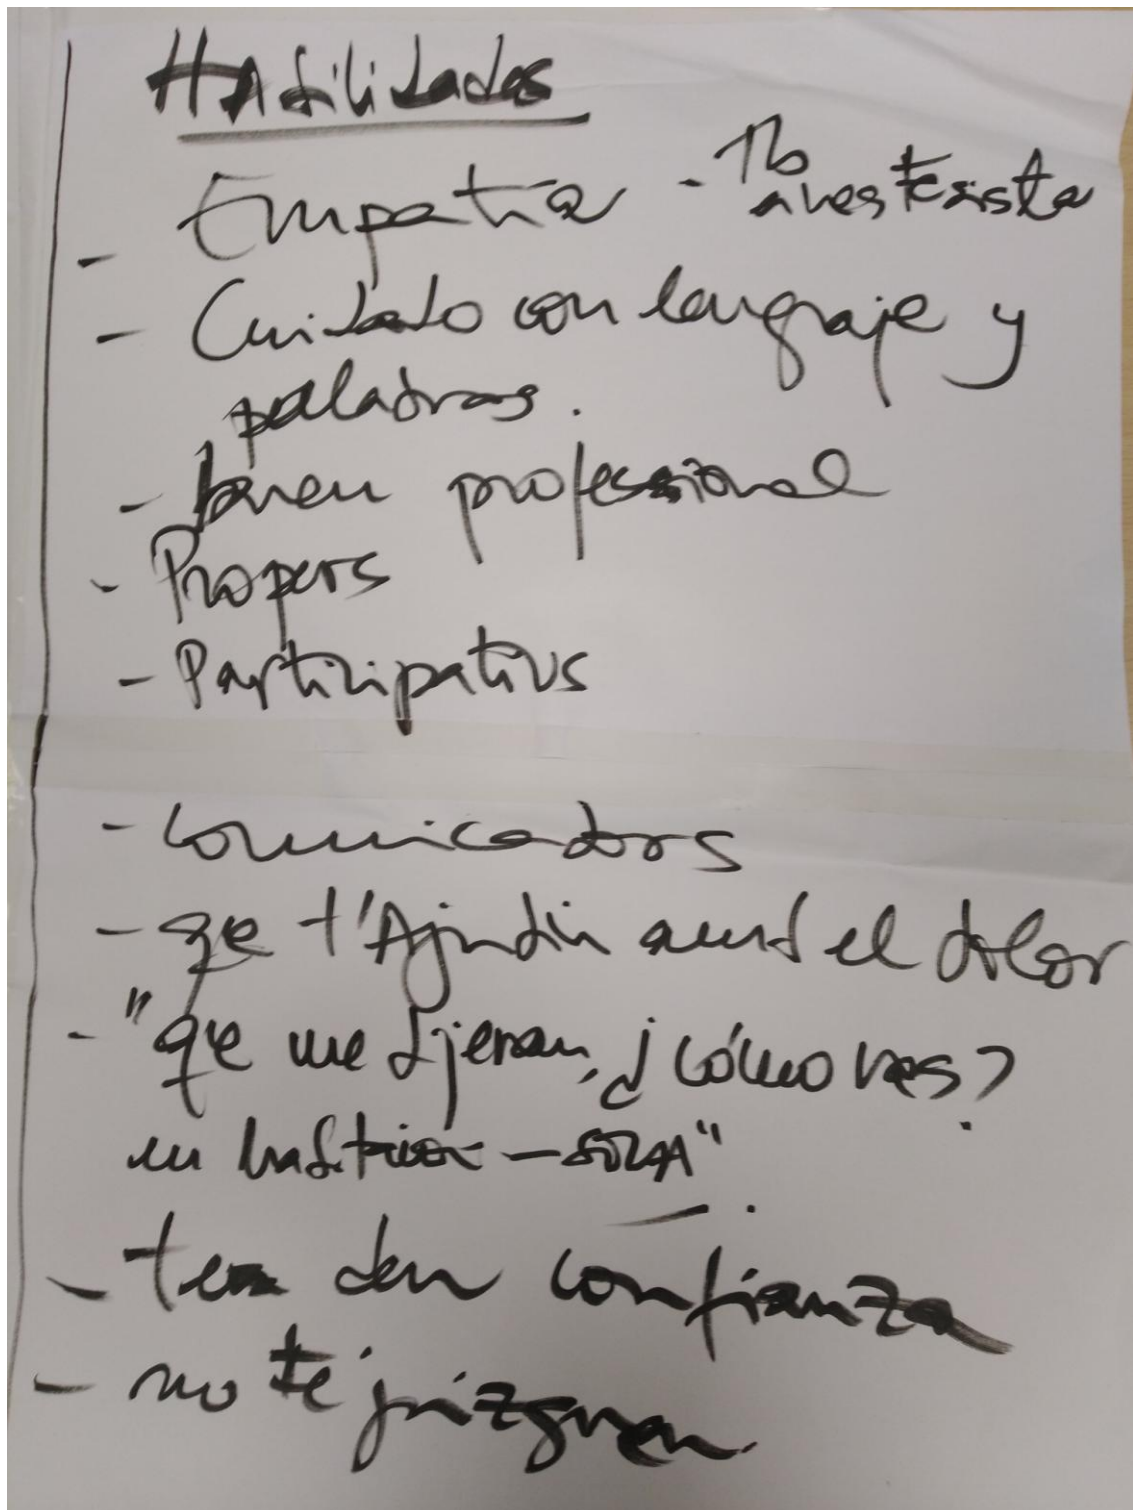 Habilidades
- Empatía - Tb anestesista
- Cuidado con lenguaje y
palabras.
- buen professional
- Propers
- Participatius
- Comunicadors
- qe t'Ajudin amb el dolor
- "qe me dijeran, ¿cómo vas?
en habitación - SOLA"
- te den confianza
- no te juizguen.